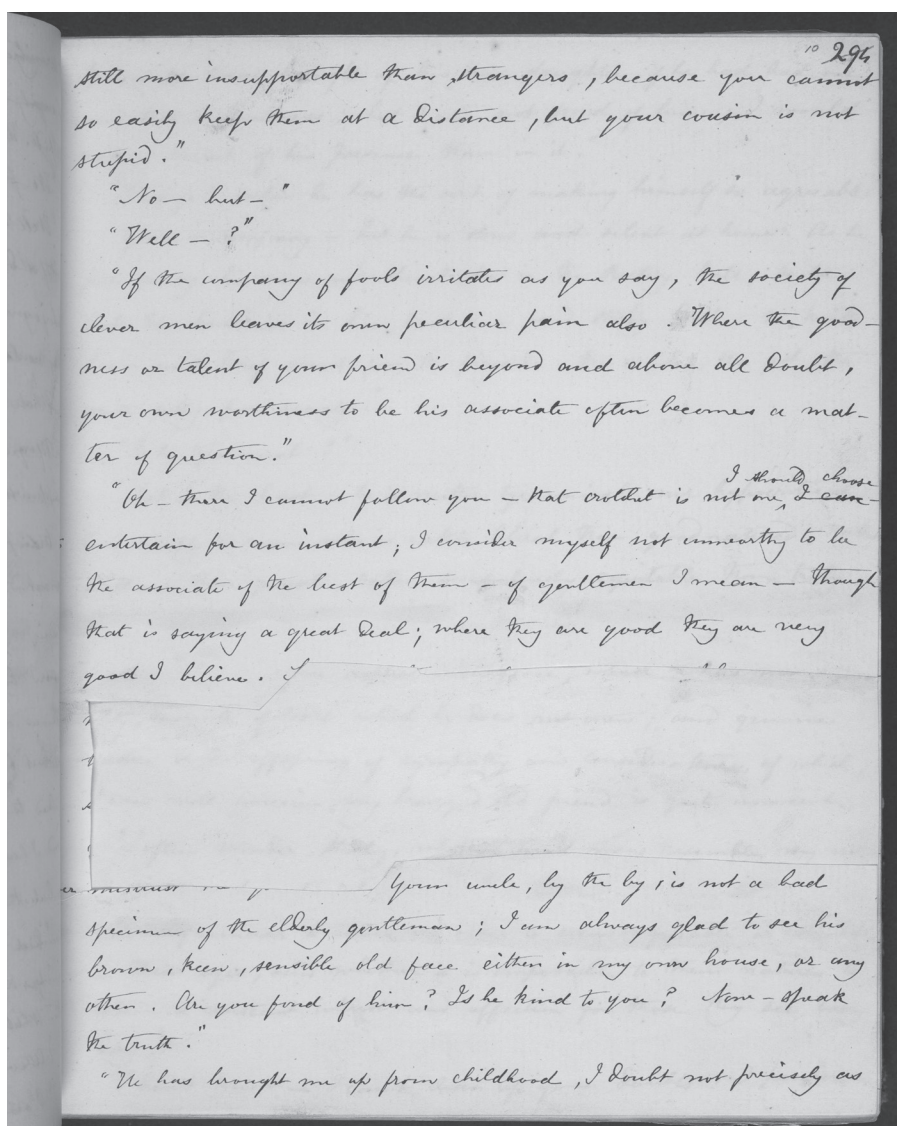 10 294
still more insupportable than strangers, because you cannot
so easily keep them at a distance, but your cousin is not
stupid."
"No — but —"
"Well — ?"
"If the company of fools irritates as you say, the society of
clever men leaves its own peculiar pain also. Where the good-
ness or talent of your friend is beyond and above all doubt,
your own worthiness to be his associate often becomes a mat-
ter of question."
I should choose
"Oh — there I cannot follow you — that crotchet is not one I can
entertain for an instant; I consider myself not unworthy to be
the associate of the best of them — of gentlemen I mean — though
that is saying a great deal; where they are good they are very
good I believe.
Your uncle, by the by, is not a bad
specimen of the elderly gentleman; I am always glad to see his
brown, keen, sensible old face either in my own house, or any
other. Are you fond of him? Is he kind to you? Now — speak
the truth."
"He has brought me up from childhood, I doubt not precisely as